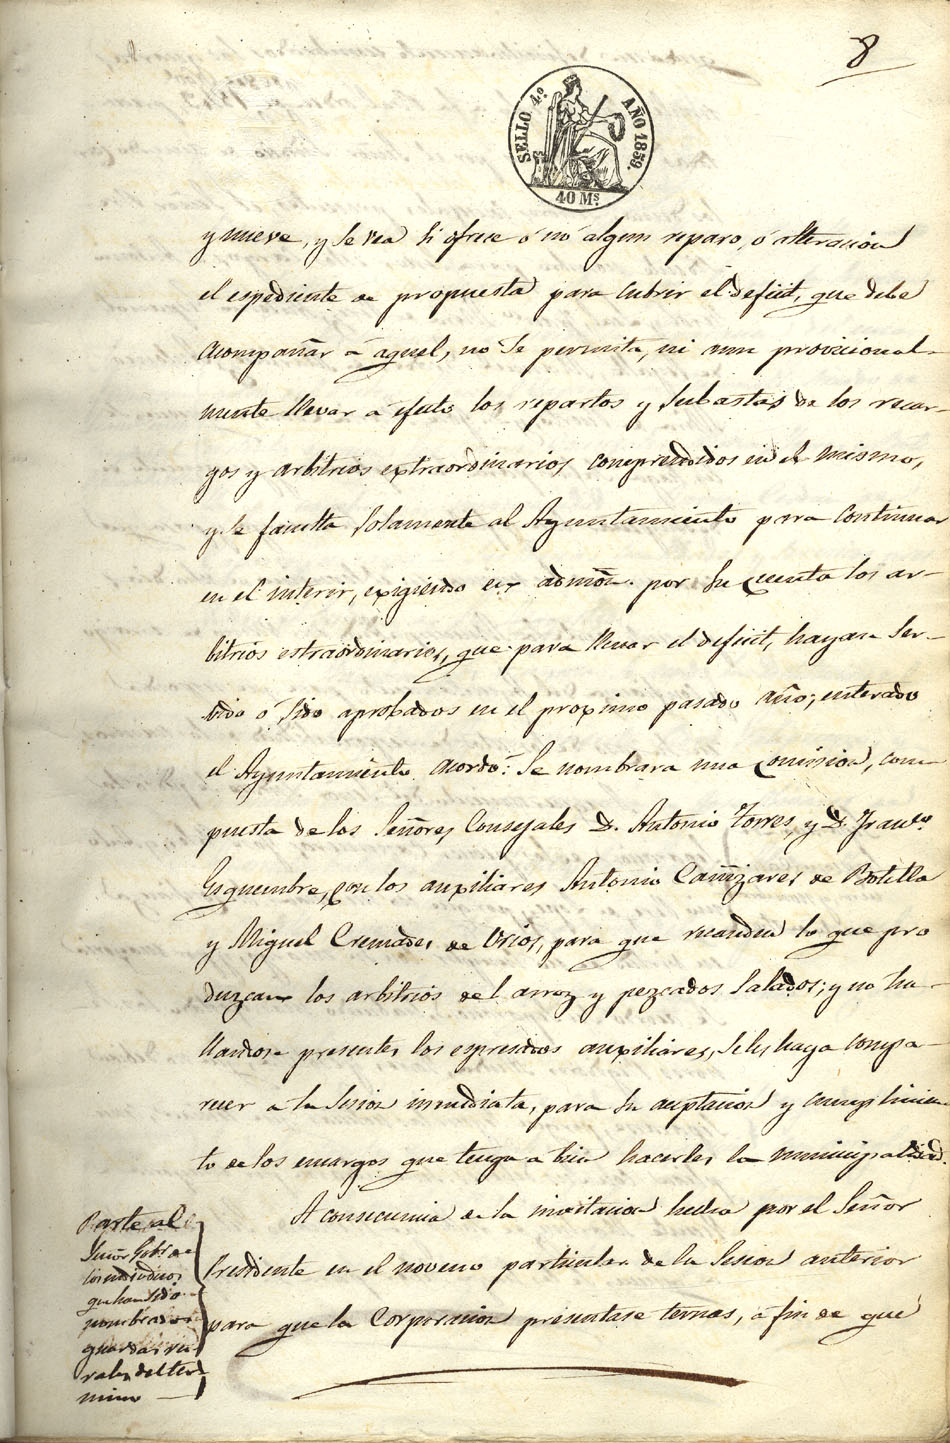 8
SELLO 4.º AÑO 1859.
40 Ms
y nueve, y se vea si ofrece ó nó algun reparo, ó alteracion
el espediente de propuesta para cubrir el deficit, que debe
acompañar a aquel, no se permita, ni aun provicional-
mente llevar a efecto los repartos y subastas de los recar-
gos y arbitrios extraordinarios comprendidos en el mismo,
y se faculta solamente al Ayuntamiento para continuar
en el interir, exigiendo en admon. por su cuenta los ar-
bitrios estraordinarios, que para llenar el deficit, hayan ser-
vido ó sido aprobados en el proximo pasado año; enterado
el Ayuntamiento acordó: Se nombrara una comision, com-
puesta de los Señores Consejales D. Antonio Torres, y D. Franco
Esquembre, con los auxiliares Antonio Cañizares de Botella
y Miguel Cremades de Orios, para que recauden lo que pro
duzcan los arbitrios del arroz y pezcados salados; y no ha-
llandose presentes los espresados auxiliares, se les haga compa-
recer a la sesion inmediata, para su aceptacion y cumplimien-
to de los encargos que tenga a bien hacerles la municipalidad.
A consecuencia de la invitacion hecha por el Señor
Presidente en el noveno particular de la sesion anterior
para que la Corporacion presentase ternas, a fin de que
Parte al
Señor Gobr de
los individuos
que han sido
nombrados
guardas ru-
rales del ter-
mino